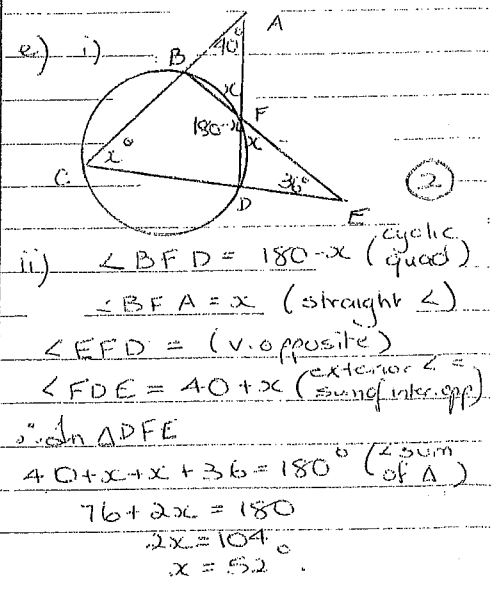 A
e) i)
40°
B
x
F
180-x
x
x°
C
36°
②
D
E
ii) ∠BFD = 180-x (cyclic quad)
∠BFA = x (straight ∠)
∠EFD = (v.opposite)
∠FDE = 40+x (exterior ∠ = sum of inter.opp)
∴ In ΔDFE
40+x+x+36=180° (∠ sum of Δ)
76+2x = 180
2x=104
x = 52°.